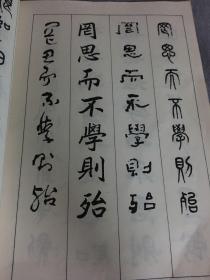 罔思而不學則殆
罔思而不學則殆
罔思而不學則殆
罔思而不學則殆